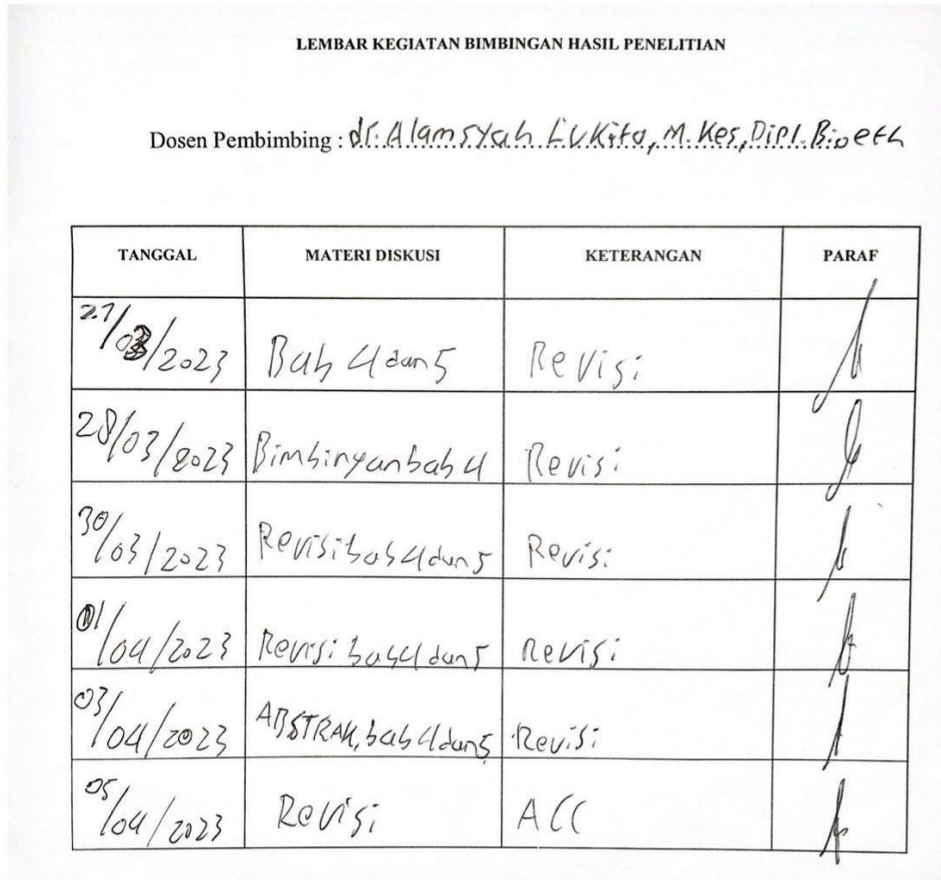 LEMBAR KEGIATAN BIMBINGAN HASIL PENELITIAN
Dosen Pembimbing : dr. Alamsyah Lukito, M. Kes, Dipl. Bioeth
TANGGAL MATERI DISKUSI KETERANGAN PARAF
27/03/2023 Bab 4 dan 5 Revisi
28/03/2023 Bimbingan bab 4 Revisi
30/03/2023 Revisi bab 4 dan 5 Revisi
01/04/2023 Revisi bab 4 dan 5 Revisi
03/04/2023 ABSTRAK, bab 4 dan 5 Revisi
05/04/2023 Revisi ACC